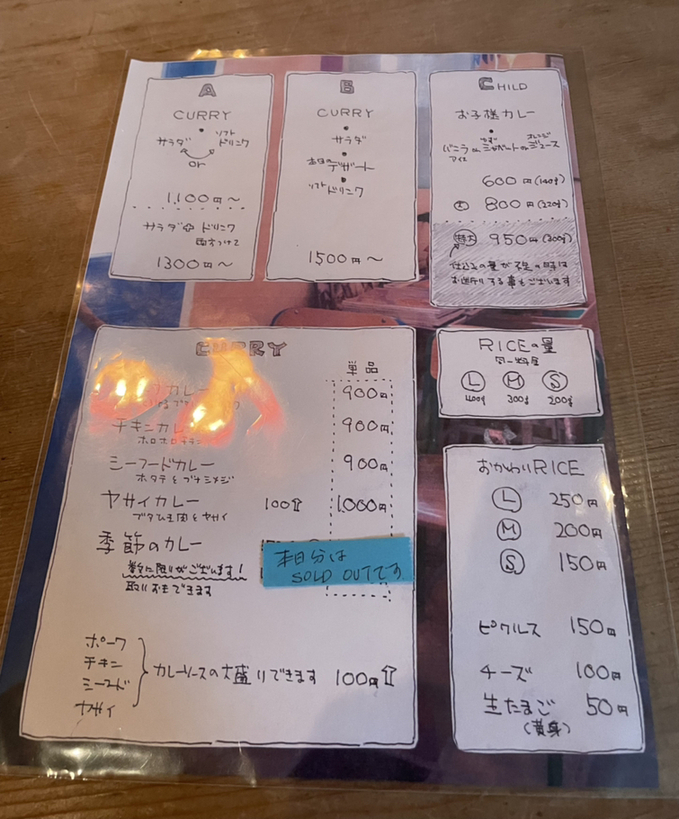 A
CURRY
サラダ or ソフトドリンク
1,100円〜
サラダ ドリンク
両方つけて
1300円〜
B
CURRY
サラダ
本日のデザート
ソフトドリンク
1500円〜
CHILD
お子様カレー
バニラアイス or ゆずシャーベット or オレンジジュース
600円(140g)
大 800円(220g)
特大 950円(300g)
仕込みの量が
お断りする事もございます
CURRY
単品
カレー 900円
チキンカレー 900円
ホロホロチキン
シーフードカレー 900円
ホタテとブナシメジ
ヤサイカレー 100⇧ 1,000円
ブタひき肉とヤサイ
季節のカレー
数に限りがございます!
取りおきできます
本日分は
SOLD OUTです
ポーク
チキン
シーフード
ヤサイ
カレーソースの大盛りできます 100円⇧
RICEの量
同一料金
L M S
400g 300g 200g
おかわりRICE
L 250円
M 200円
S 150円
ピクルス 150円
チーズ 100円
生たまご 50円
(黄身)